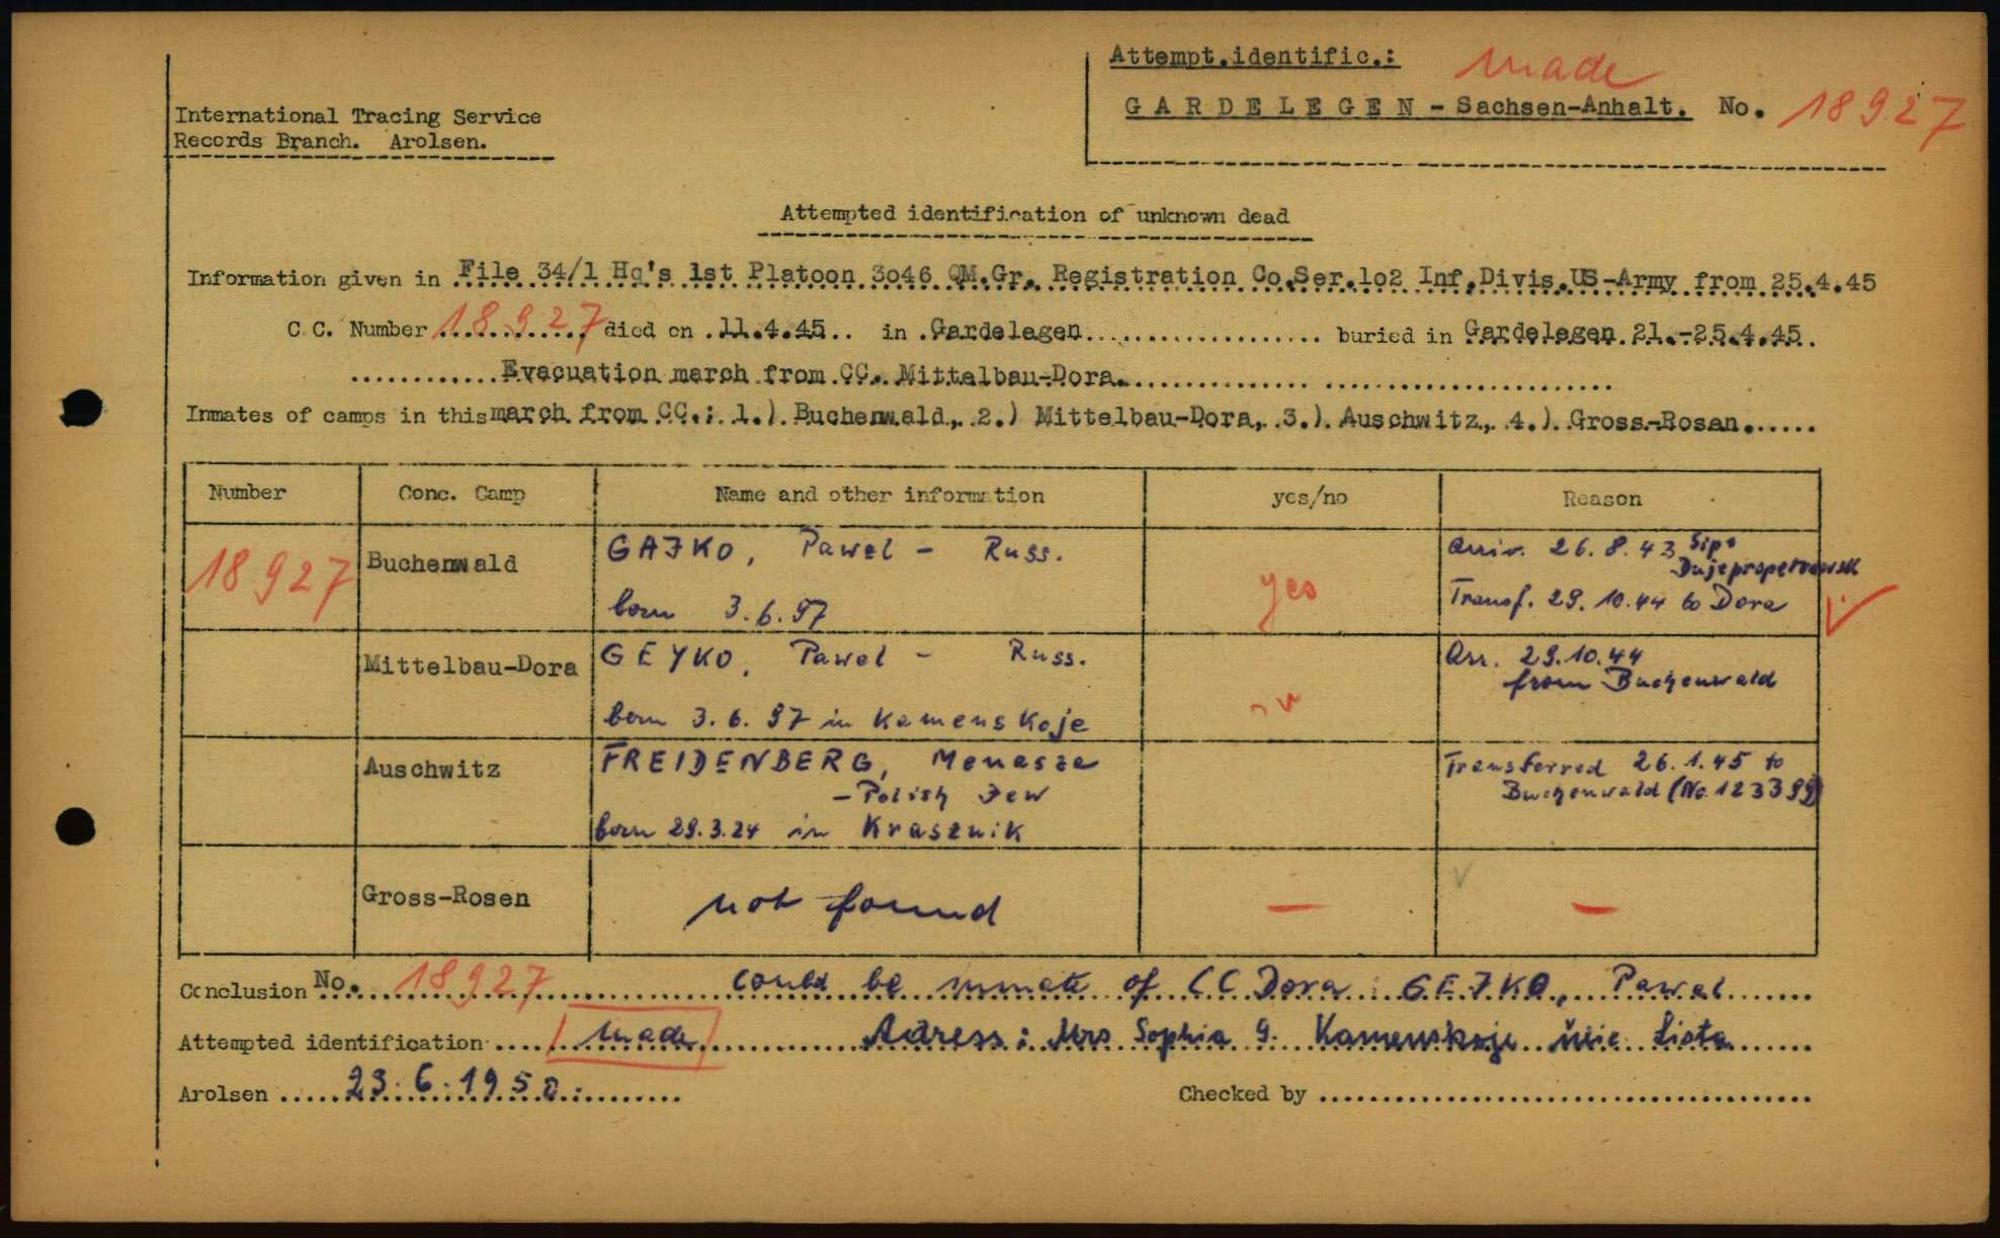 Attempt.identific.: made
GARDELEGEN - Sachsen-Anhalt. No. 18927
International Tracing Service
Records Branch. Arolsen.
Attempted identification of unknown dead
Information given in File 34/1 Hq's 1st Platoon 3o46 QM.Gr. Registration Co.Ser.1o2 Inf.Divis.US-Army from 25.4.45
C.C. Number 18927 died on 11.4.45 in Gardelegen buried in Gardelegen 21.-25.4.45.
Evacuation march from CC. Mittelbau-Dora.
Inmates of camps in this march from CC.: 1.) Buchenwald, 2.) Mittelbau-Dora, 3.) Auschwitz, 4.) Gross-Rosan.
Number Conc. Camp Name and other information yes/no Reason
18927 Buchenwald GAJKO, Pawel - Russ. yes Arriv. 26.8.43 Sipo
born 3.6.97 Transf. 29.10.44 to Dora
Mittelbau-Dora GEYKO, Pawel - Russ. Arr. 29.10.44
from Buchenwald
born 3.6.97 in Kamenskoje
Auschwitz FREIDENBERG, Menasze Transferred 26.1.45 to
- Polish Jew Buchenwald (No 123399)
born 29.3.24 in Krasznik
Gross-Rosen not found — —
Conclusion No. 18927 could be inmate of CC Dora : GEJKO, Pawel
Attempted identification made Adress: Mrs Sophia G. Kamenskoje Lista
Arolsen 23.6.1950. Checked by